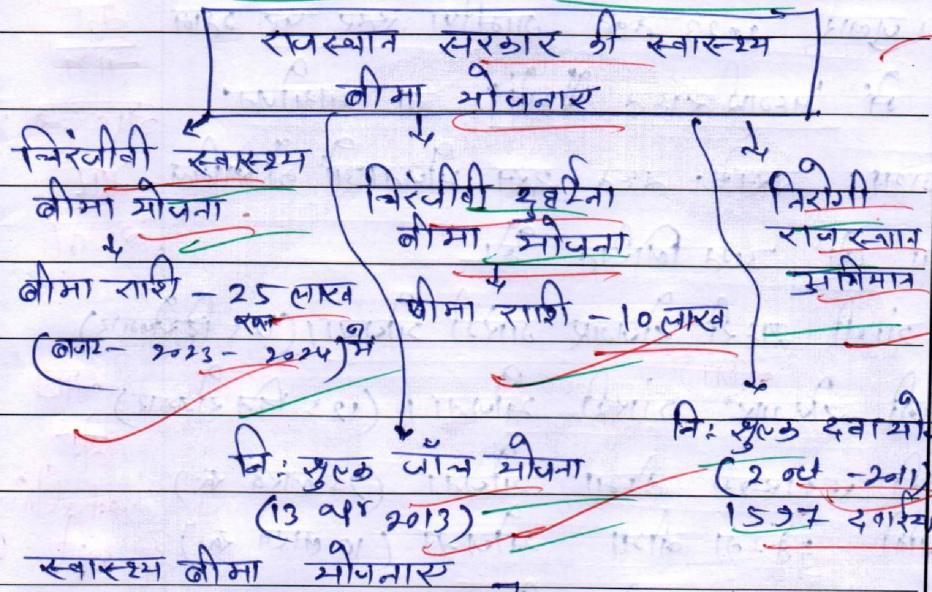 राजस्थान सरकार की स्वास्थ्य
बीमा योजनाए
चिरंजीवी स्वास्थ्य
बीमा योजना
बीमा राशि - 25 लाख
(बजट - 2023 - 2024) में
चिरंजीवी दुर्घटना
बीमा योजना
बीमा राशि - 10 लाख
निरोगी
राजस्थान
अभियान
नि: शुल्क जाँच योजना
(13 अप्रै 2013)
नि: शुल्क दवा यो
(2 oct - 2011)
1597 दवाईय
स्वास्थ्य बीमा योजनाए